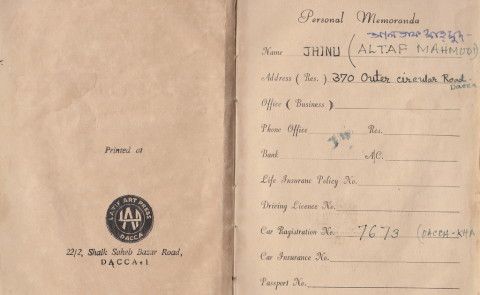 Printed at
LATIF ART PRESS
DACCA
22/2, Shaik Saheb Bazar Road,
DACCA-1
Personal Memoranda
আলতাফ মাহমুদ
Name JHINU (ALTAF MAHMUD)
Address (Res.) 370 Outer circular Road
Dacca
Office (Business)
Phone Office Res.
Bank A/C.
Life Insurance Policy No.
Driving Licence No.
Car Registration No. 7673 (DACCA-KHA
Car Insurance No.
Passport No.